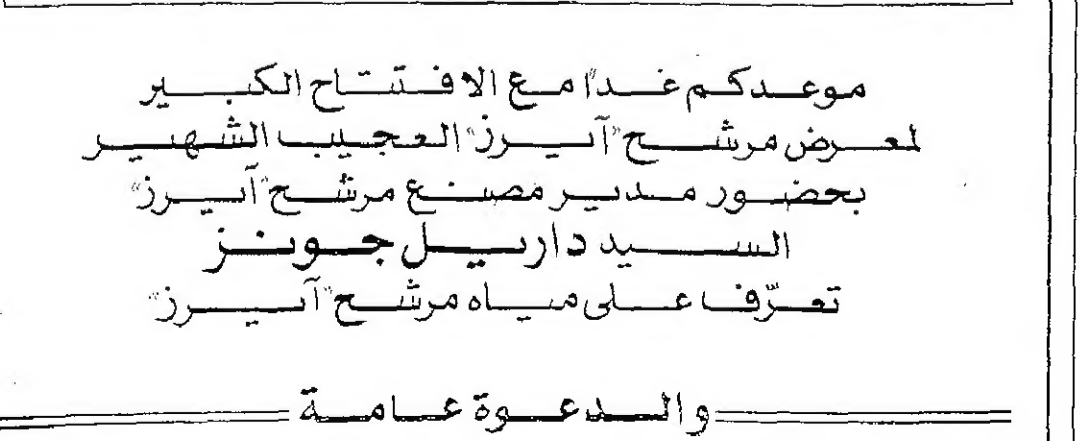 موعدكم غداً مع الافتتاح الكبير
لمعرض مرشح "آيرز" العجيب الشهير
بحضور مدير مصنع مرشح "آيرز"
السيد داريل جونز
تعرّفا على مياه مرشح "آيرز"
والدعوة عامة